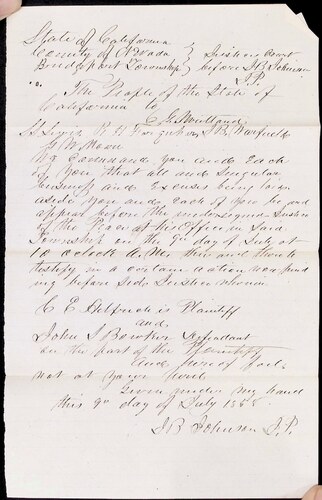 State of California
County of Nevada } Justice Court
Bridgeport Township } before J B Johnson
J.P.
The People of the State of
California to
E G
R H Farquhar J B Warfield
G W Moore
We Command you and Each
of you that all and Singular
business and Excuses being laid
aside you and each of you be and
appear before the undersigned Justice
of the Peace at his Office in said
Township on the 9th day of July at
10 oclock A. M. then and there
testify in a certain action now pend
ing before said Justice wherein
C E Helfrich is Plaintiff
and
John S Bowker Defendant
on the part of the Plaintiff
and hereof fail
not at your peril
Given under my hand
this 9th day of July
J B Johnson J. P.